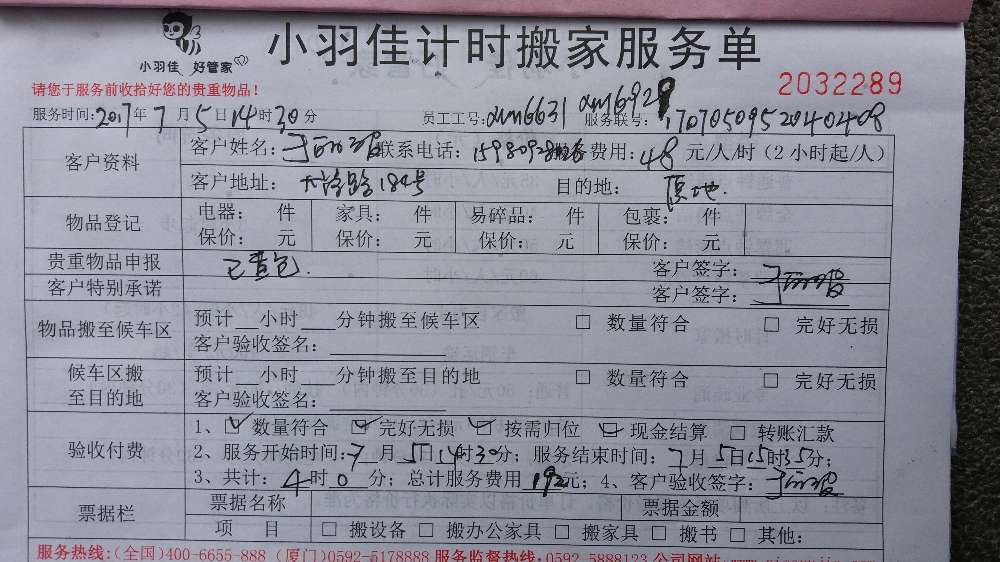 小羽佳 好管家
小羽佳计时搬家服务单
请您于服务前收拾好您的贵重物品！
2032289
服务时间：2017年7月5日14时30分 员工工号：xm6631 xm6929 服务联号：1707050952040408
客户资料
客户姓名： 联系电话： 服务费用：48元/人/时（2小时起/人）
客户地址： 184号 目的地：原地
物品登记
电器： 件 家具： 件 易碎品： 件 包裹： 件
保价： 元 保价： 元 保价： 元 保价： 元
贵重物品申报 已查包. 客户签字：
客户特别承诺 客户签字：
物品搬至候车区
预计__小时___分钟搬至候车区 □ 数量符合 □ 完好无损
客户验收签名：
候车区搬至目的地
预计__小时___分钟搬至目的地 □ 数量符合 □ 完好无损
客户验收签名：
验收付费
1、☑ 数量符合 ☑ 完好无损 ☑ 按需归位 ☑ 现金结算 □ 转账汇款
2、服务开始时间：7月5日14时30分；服务结束时间：7月5日15时35分；
3、共计：4时0分；总计服务费用192元；4、客户验收签字：
票据栏
票据名称 票据金额
项 目 □ 搬设备 □ 搬办公家具 □ 搬家具 □ 搬书 □ 其他：
服务热线：（全国）400-6655-888（厦门）0592-5178888 服务监督热线：0592-5888123 公司网站